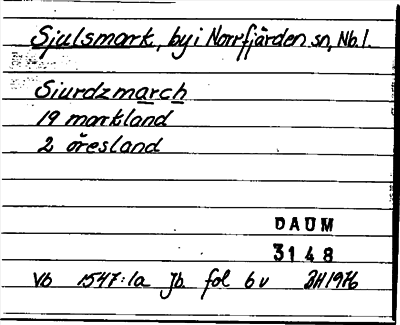 Sjulsmark, by i Norrfjärden sn, Nb.l.
Siurdzmarch
19 markland
2 öresland
DAUM
3148
Vb 1547:1a Jb. fol 6v BH1976